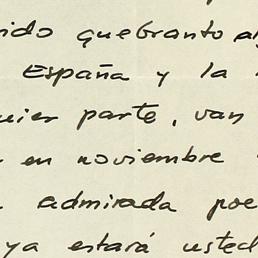 ido quebranto al
España y la
uier parte, van
en noviembre
admirada poe
ya estará usted